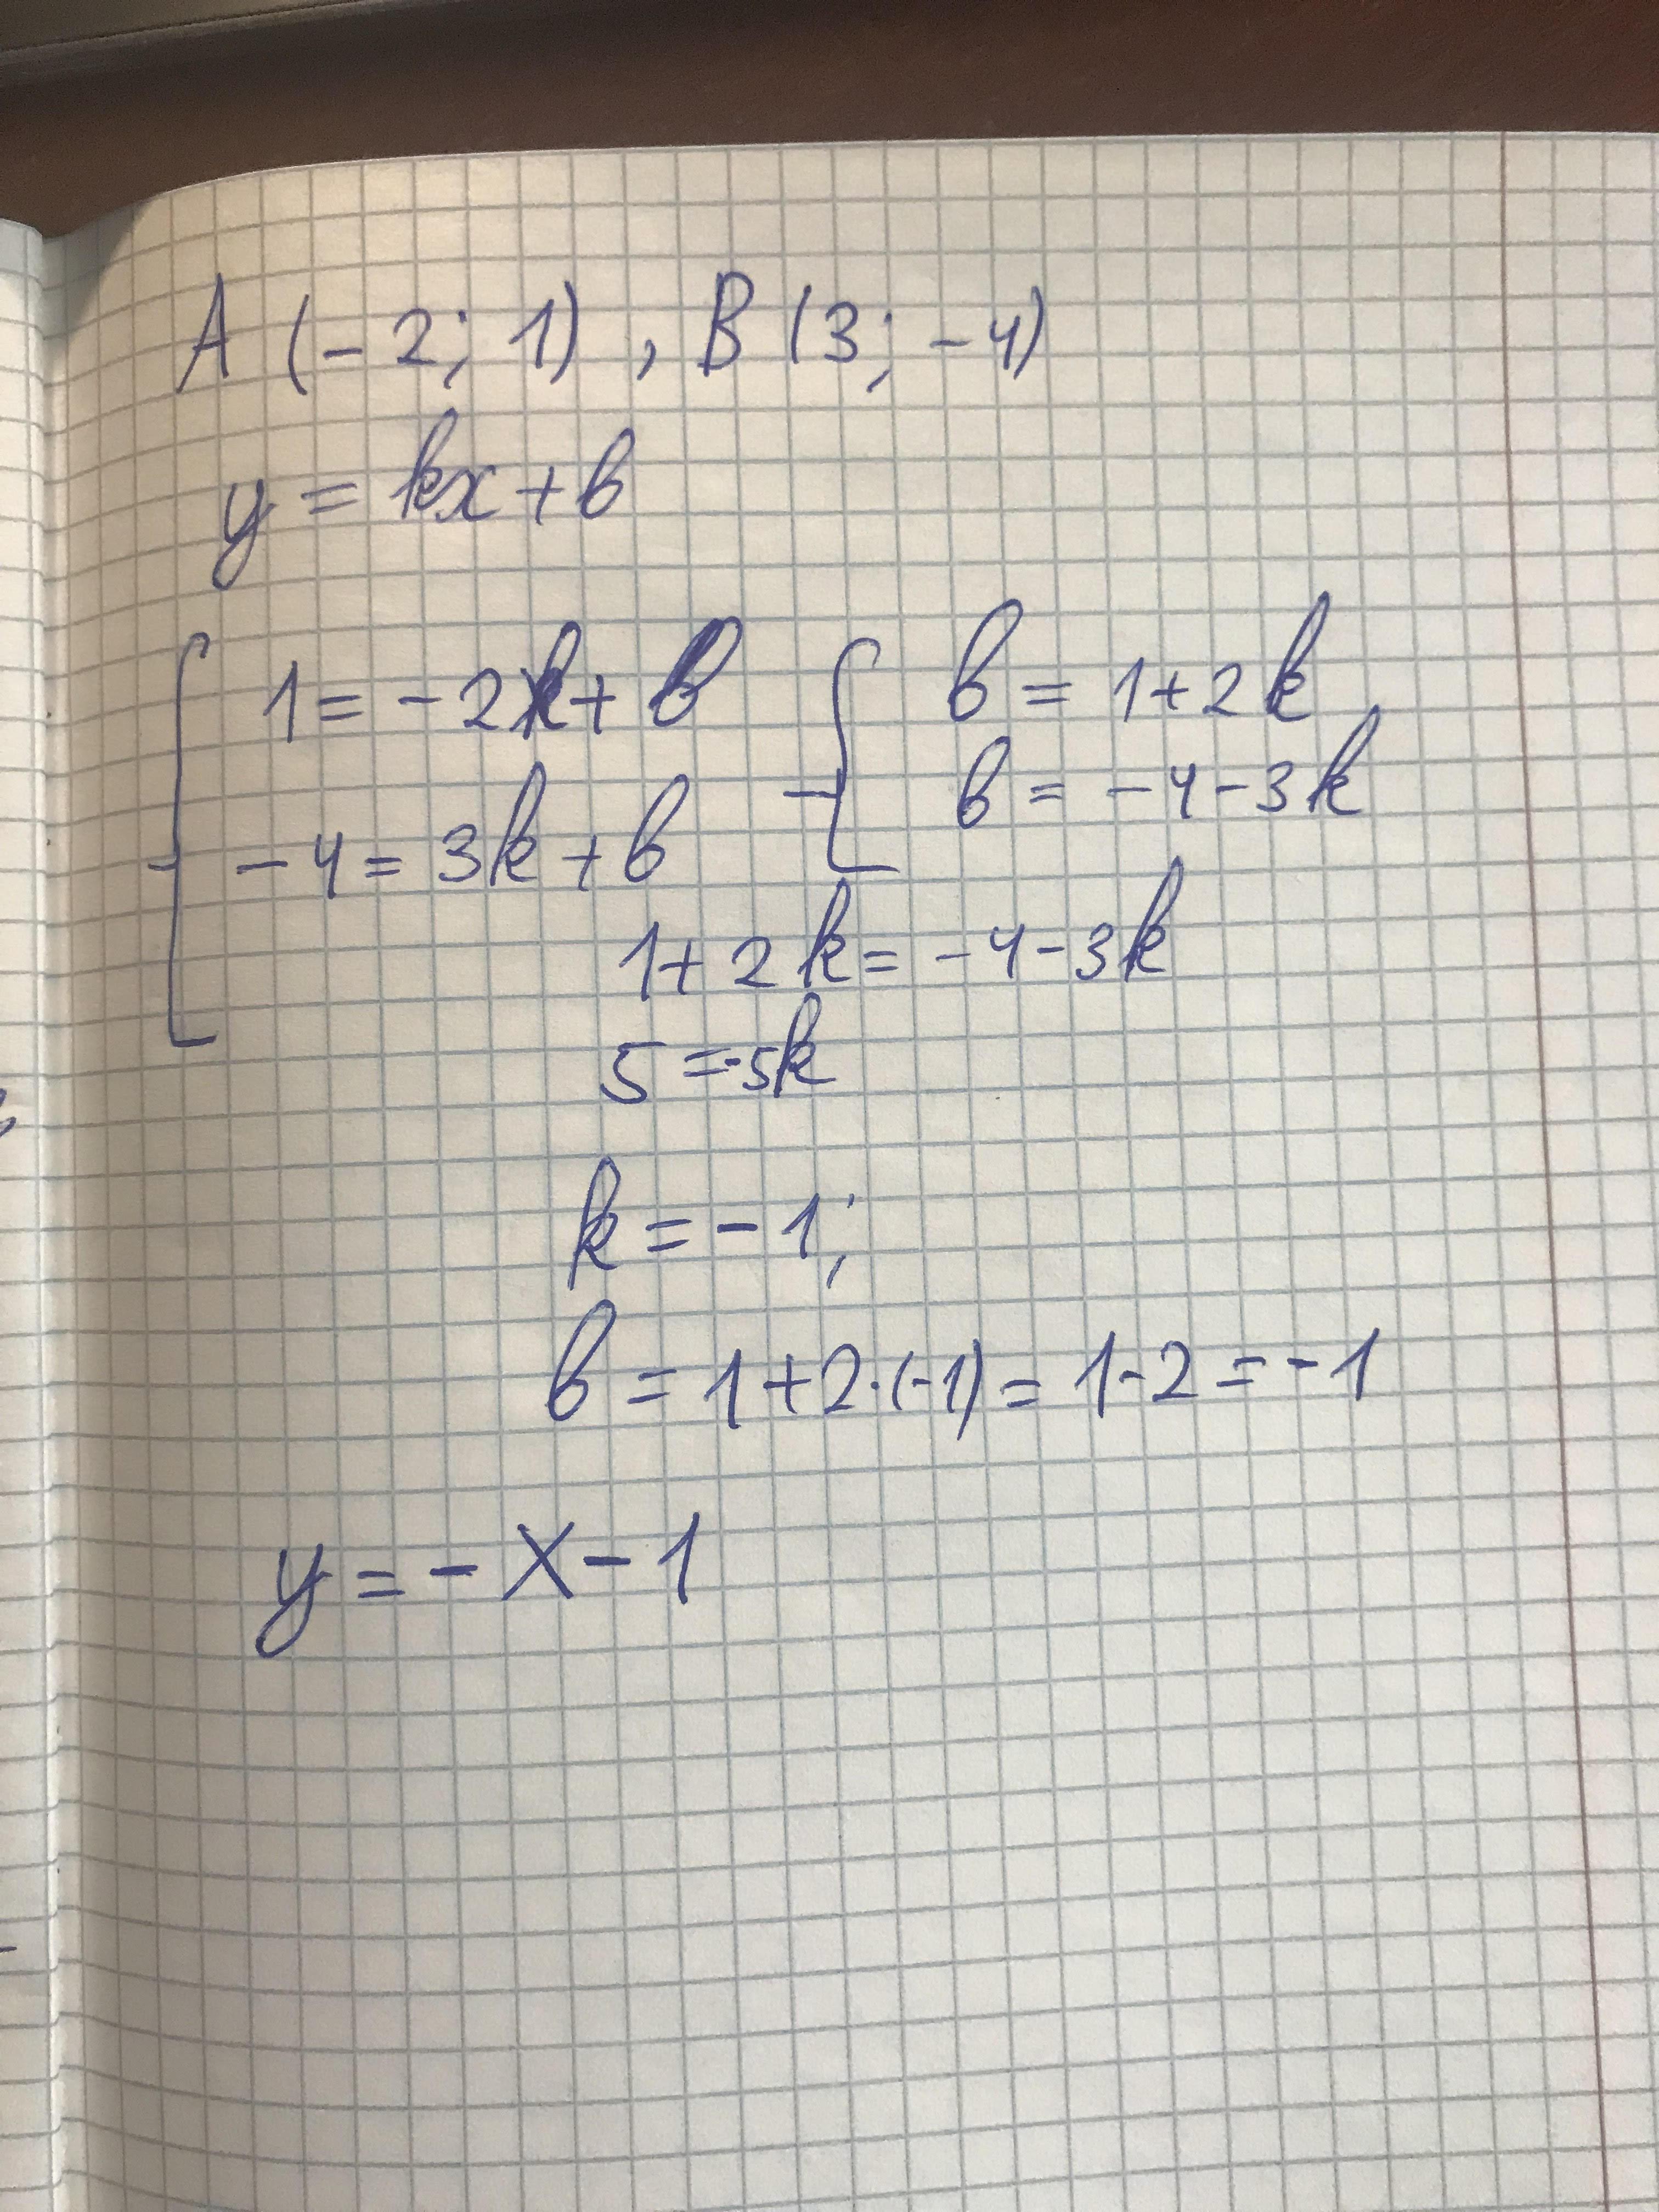 A (-2; 1), B (3; -4)
y = kx + b
{ 1 = -2k + b { b = 1 + 2k
-4 = 3k + b b = -4 - 3k
1 + 2k = -4 - 3k
5 = -5k
k = -1;
b = 1 + 2·(-1) = 1 - 2 = -1
y = -x - 1